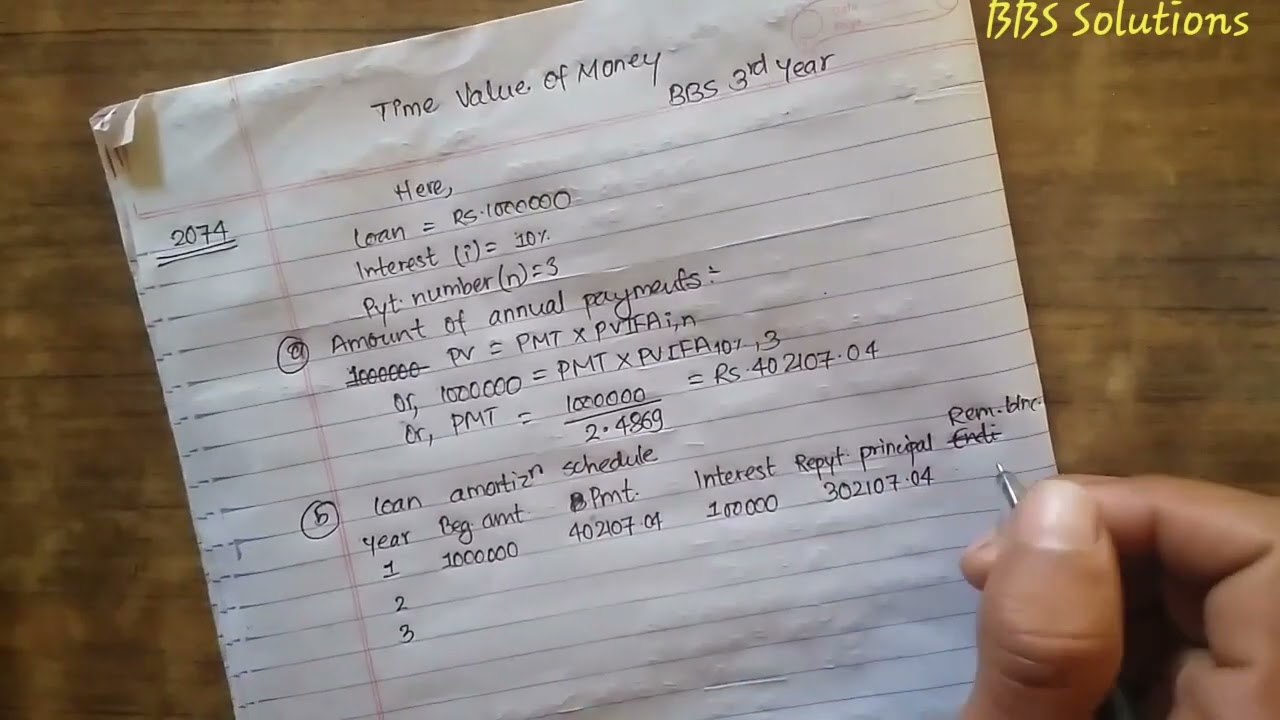 BBS Solutions
Time Value of Money
BBS 3rd year
2074
Here,
Loan = Rs.1000000
Interest (i) = 10%
Pyt. number (n) = 3
a Amount of annual payments:
1000000 PV = PMT × PVIFAi,n
or, 1000000 = PMT × PVIFA10%,3
or, PMT = 1000000 / 2.4869 = Rs.402107.04
b Loan amortizn schedule
year Beg amt. Pmt. Interest Repyt. principal Endi Rem. blnc.
1 1000000 402107.04 100000 302107.04
2
3